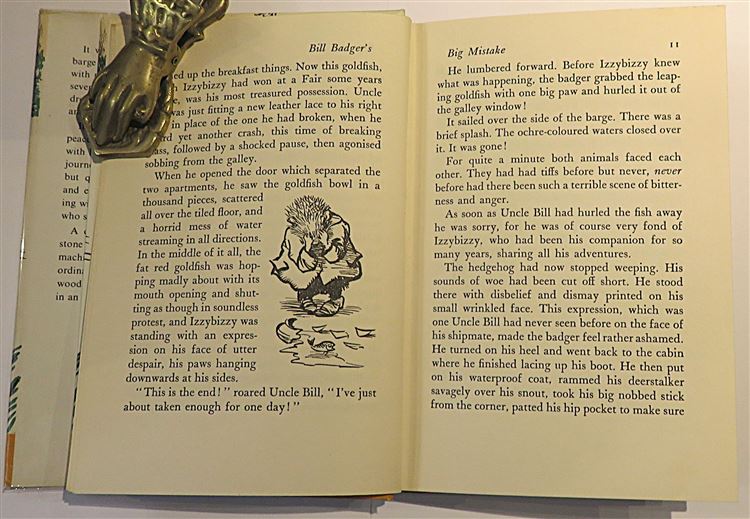 It w
barge
with
seve
dr
an
peac
with
journ
but q
and e
with
who s
A
stone
mach
ordin
wood
in an
Bill Badger's
ed up the breakfast things. Now this goldfish,
h Izzybizzy had won at a Fair some years
e, was his most treasured possession. Uncle
was just fitting a new leather lace to his right
in place of the one he had broken, when he
rd yet another crash, this time of breaking
ass, followed by a shocked pause, then agonised
sobbing from the galley.
When he opened the door which separated the
two apartments, he saw the goldfish bowl in a
thousand pieces, scattered
all over the tiled floor, and
a horrid mess of water
streaming in all directions.
In the middle of it all, the
fat red goldfish was hop-
ping madly about with its
mouth opening and shut-
ting as though in soundless
protest, and Izzybizzy was
standing with an expres-
sion on his face of utter
despair, his paws hanging
downwards at his sides.
"This is the end!" roared Uncle Bill, "I've just
about taken enough for one day!"
Big Mistake 11
He lumbered forward. Before Izzybizzy knew
what was happening, the badger grabbed the leap-
ing goldfish with one big paw and hurled it out of
the galley window!
It sailed over the side of the barge. There was a
brief splash. The ochre-coloured waters closed over
it. It was gone!
For quite a minute both animals faced each
other. They had had tiffs before but never, never
before had there been such a terrible scene of bitter-
ness and anger.
As soon as Uncle Bill had hurled the fish away
he was sorry, for he was of course very fond of
Izzybizzy, who had been his companion for so
many years, sharing all his adventures.
The hedgehog had now stopped weeping. His
sounds of woe had been cut off short. He stood
there with disbelief and dismay printed on his
small wrinkled face. This expression, which was
one Uncle Bill had never seen before on the face of
his shipmate, made the badger feel rather ashamed.
He turned on his heel and went back to the cabin
where he finished lacing up his boot. He then put
on his waterproof coat, rammed his deerstalker
savagely over his snout, took his big nobbed stick
from the corner, patted his hip pocket to make sure